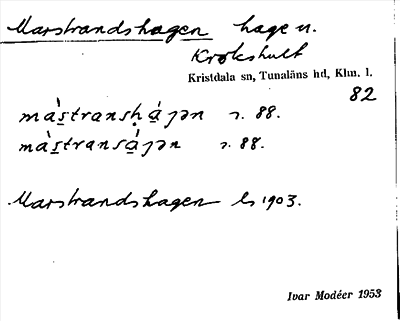 Marstrandshagen hage n.
Krokshult
Kristdala sn, Tunaläns hd, Klm. l.
82
màs̱transḥá̱ɟən 2. 88.
màs̱transá̱ɟən 2. 88.
Marstrandshagen ls 1903.
Ivar Modéer 1953